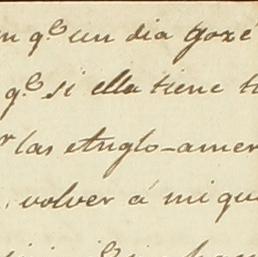 n q.e un dia gozé
q.e si ella tiene t
r las Anglo-amer
volver á mi qu